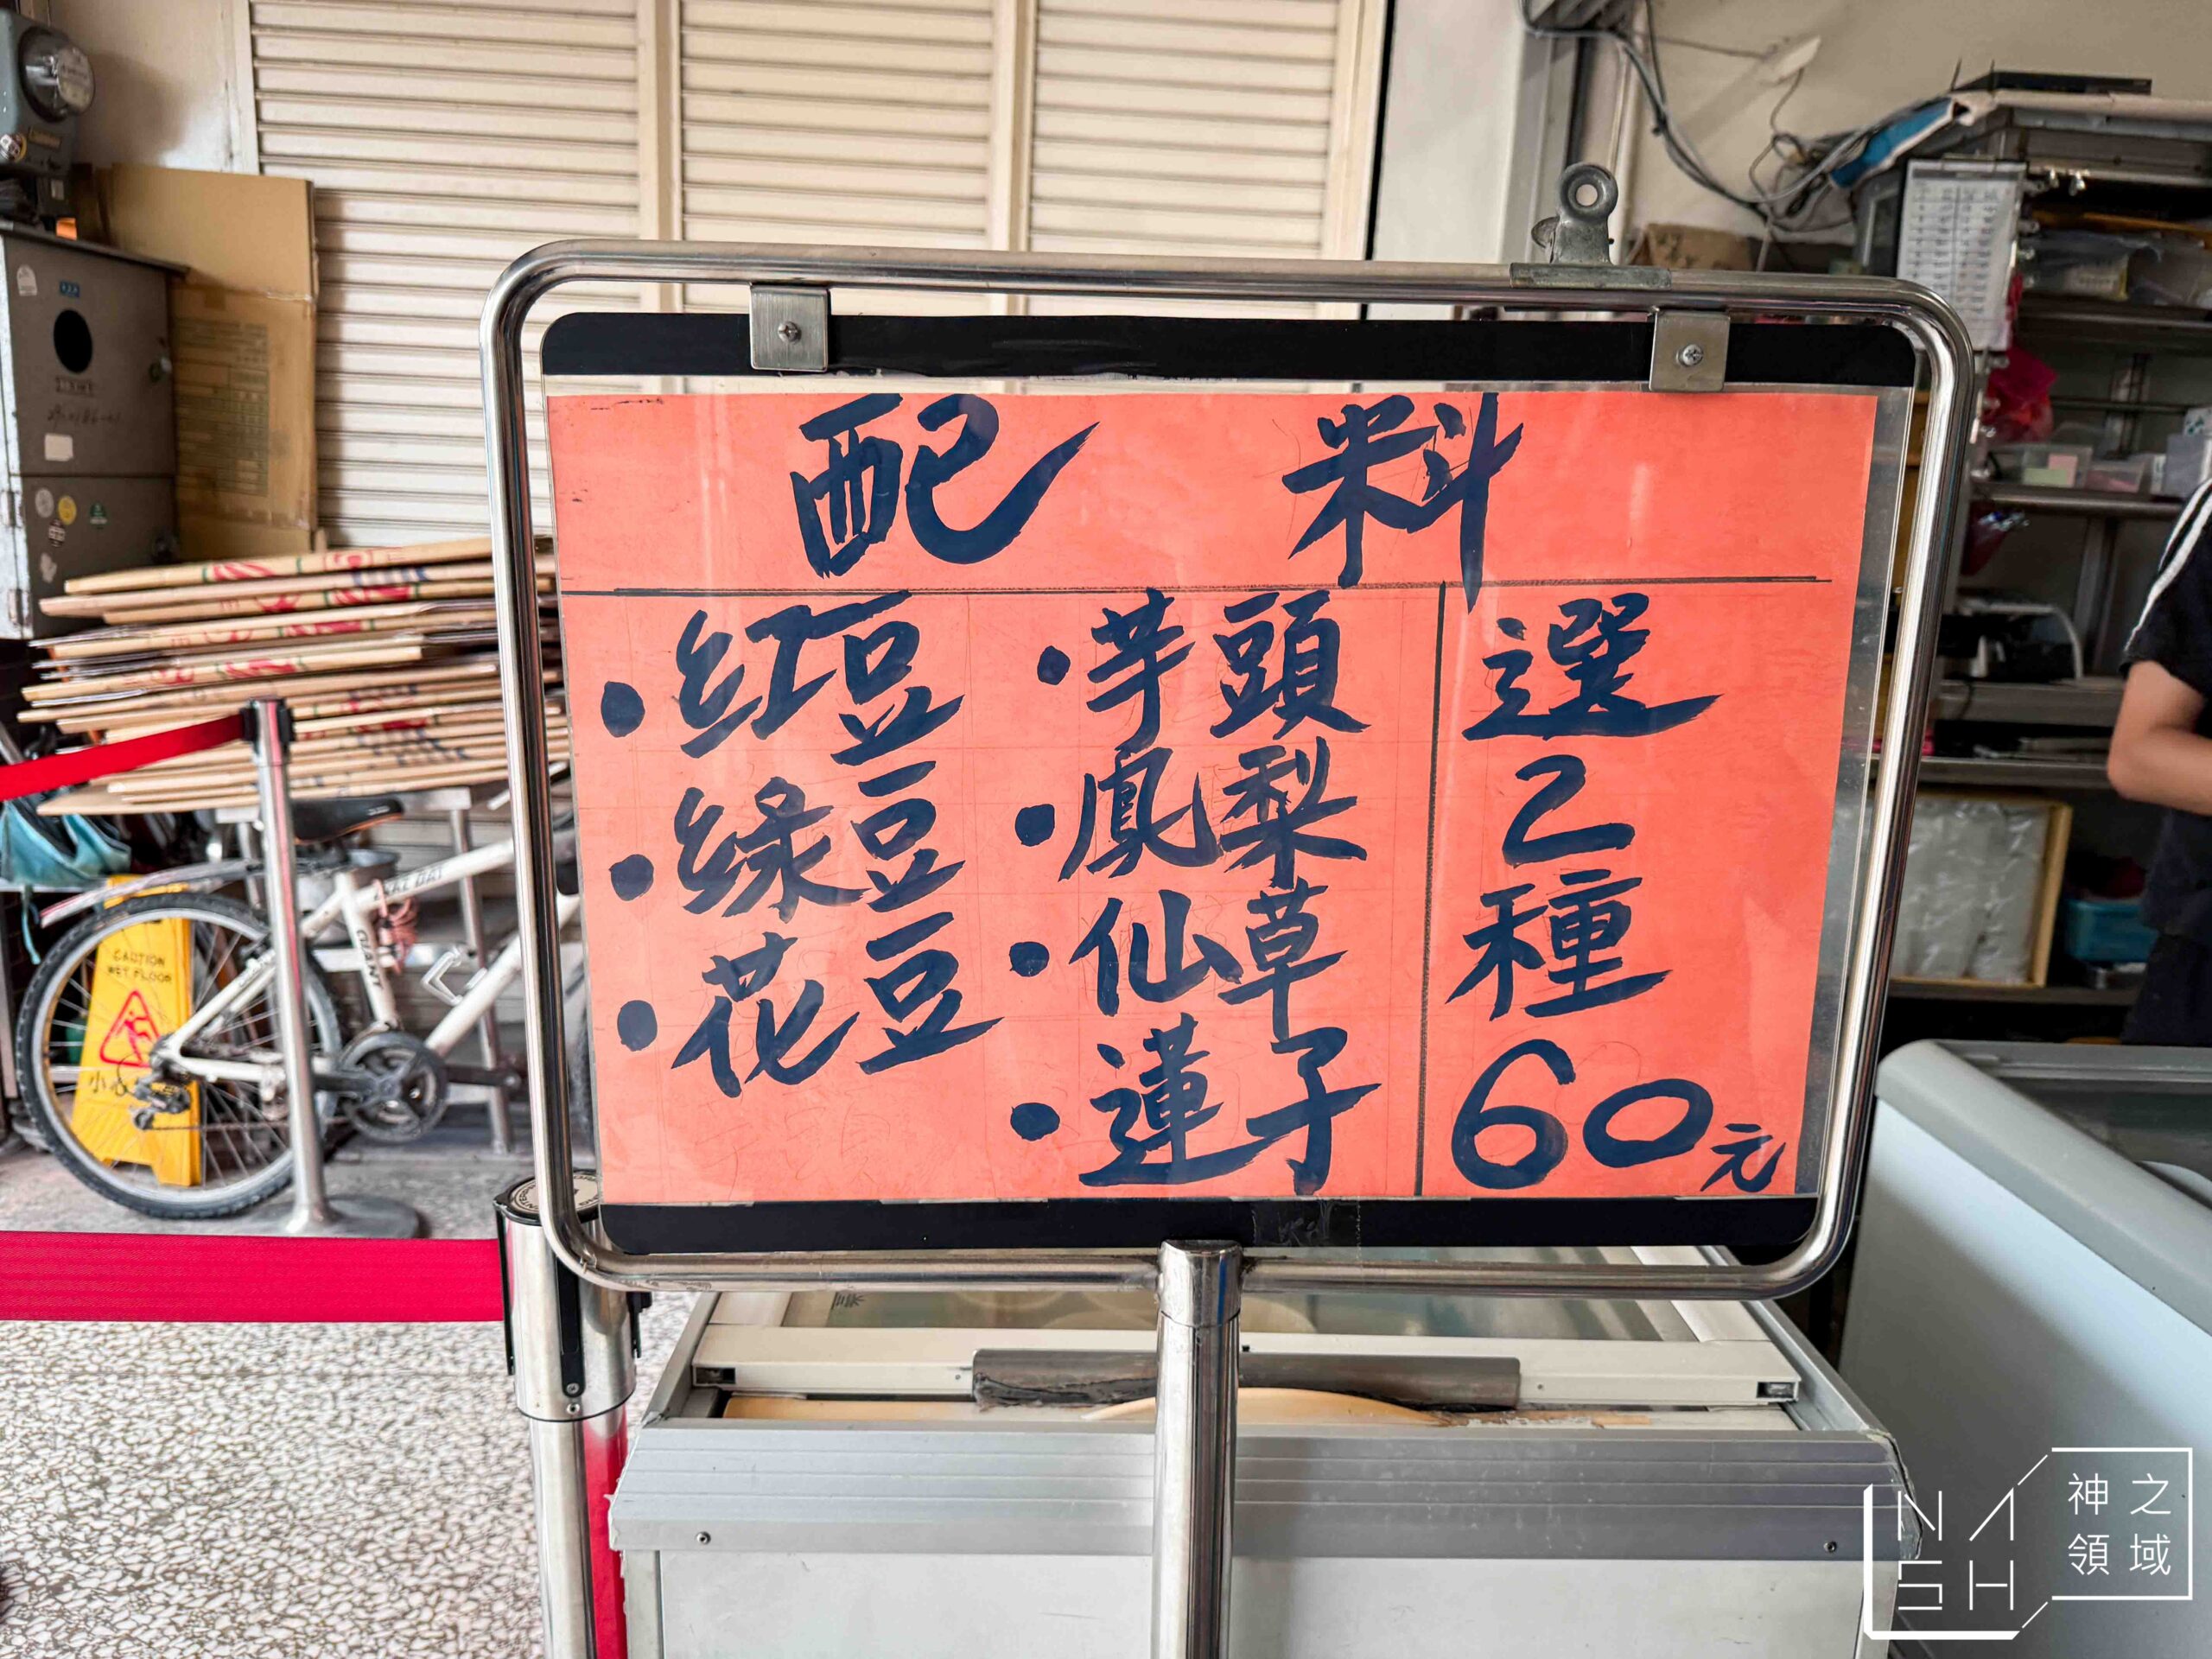 配 料
・紅豆
・綠豆
・花豆
・芋頭
・鳳梨
・仙草
・蓮子
選
2
種
60元
CAUTION
WET FLOOR
小心
GIANT
NASH
神之
領域